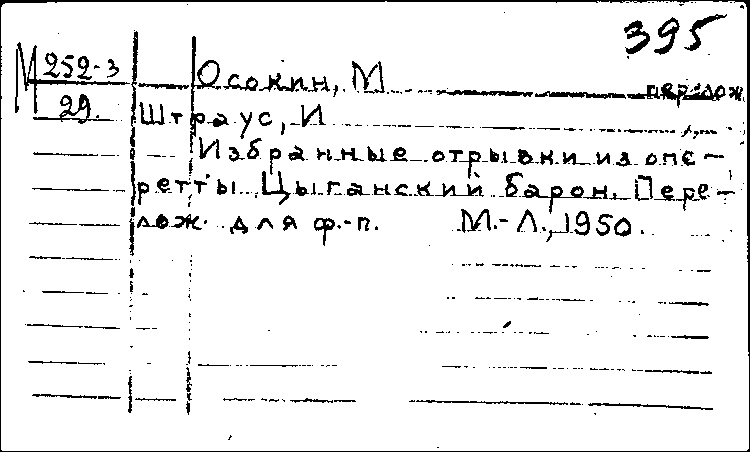 395
М 252-3 Осокин, М перелож.
29. Штраус, И
Избранные отрывки из опе-
ретты Цыганский барон. Пере-
лож. для ф.-п. М.-Л., 1950.